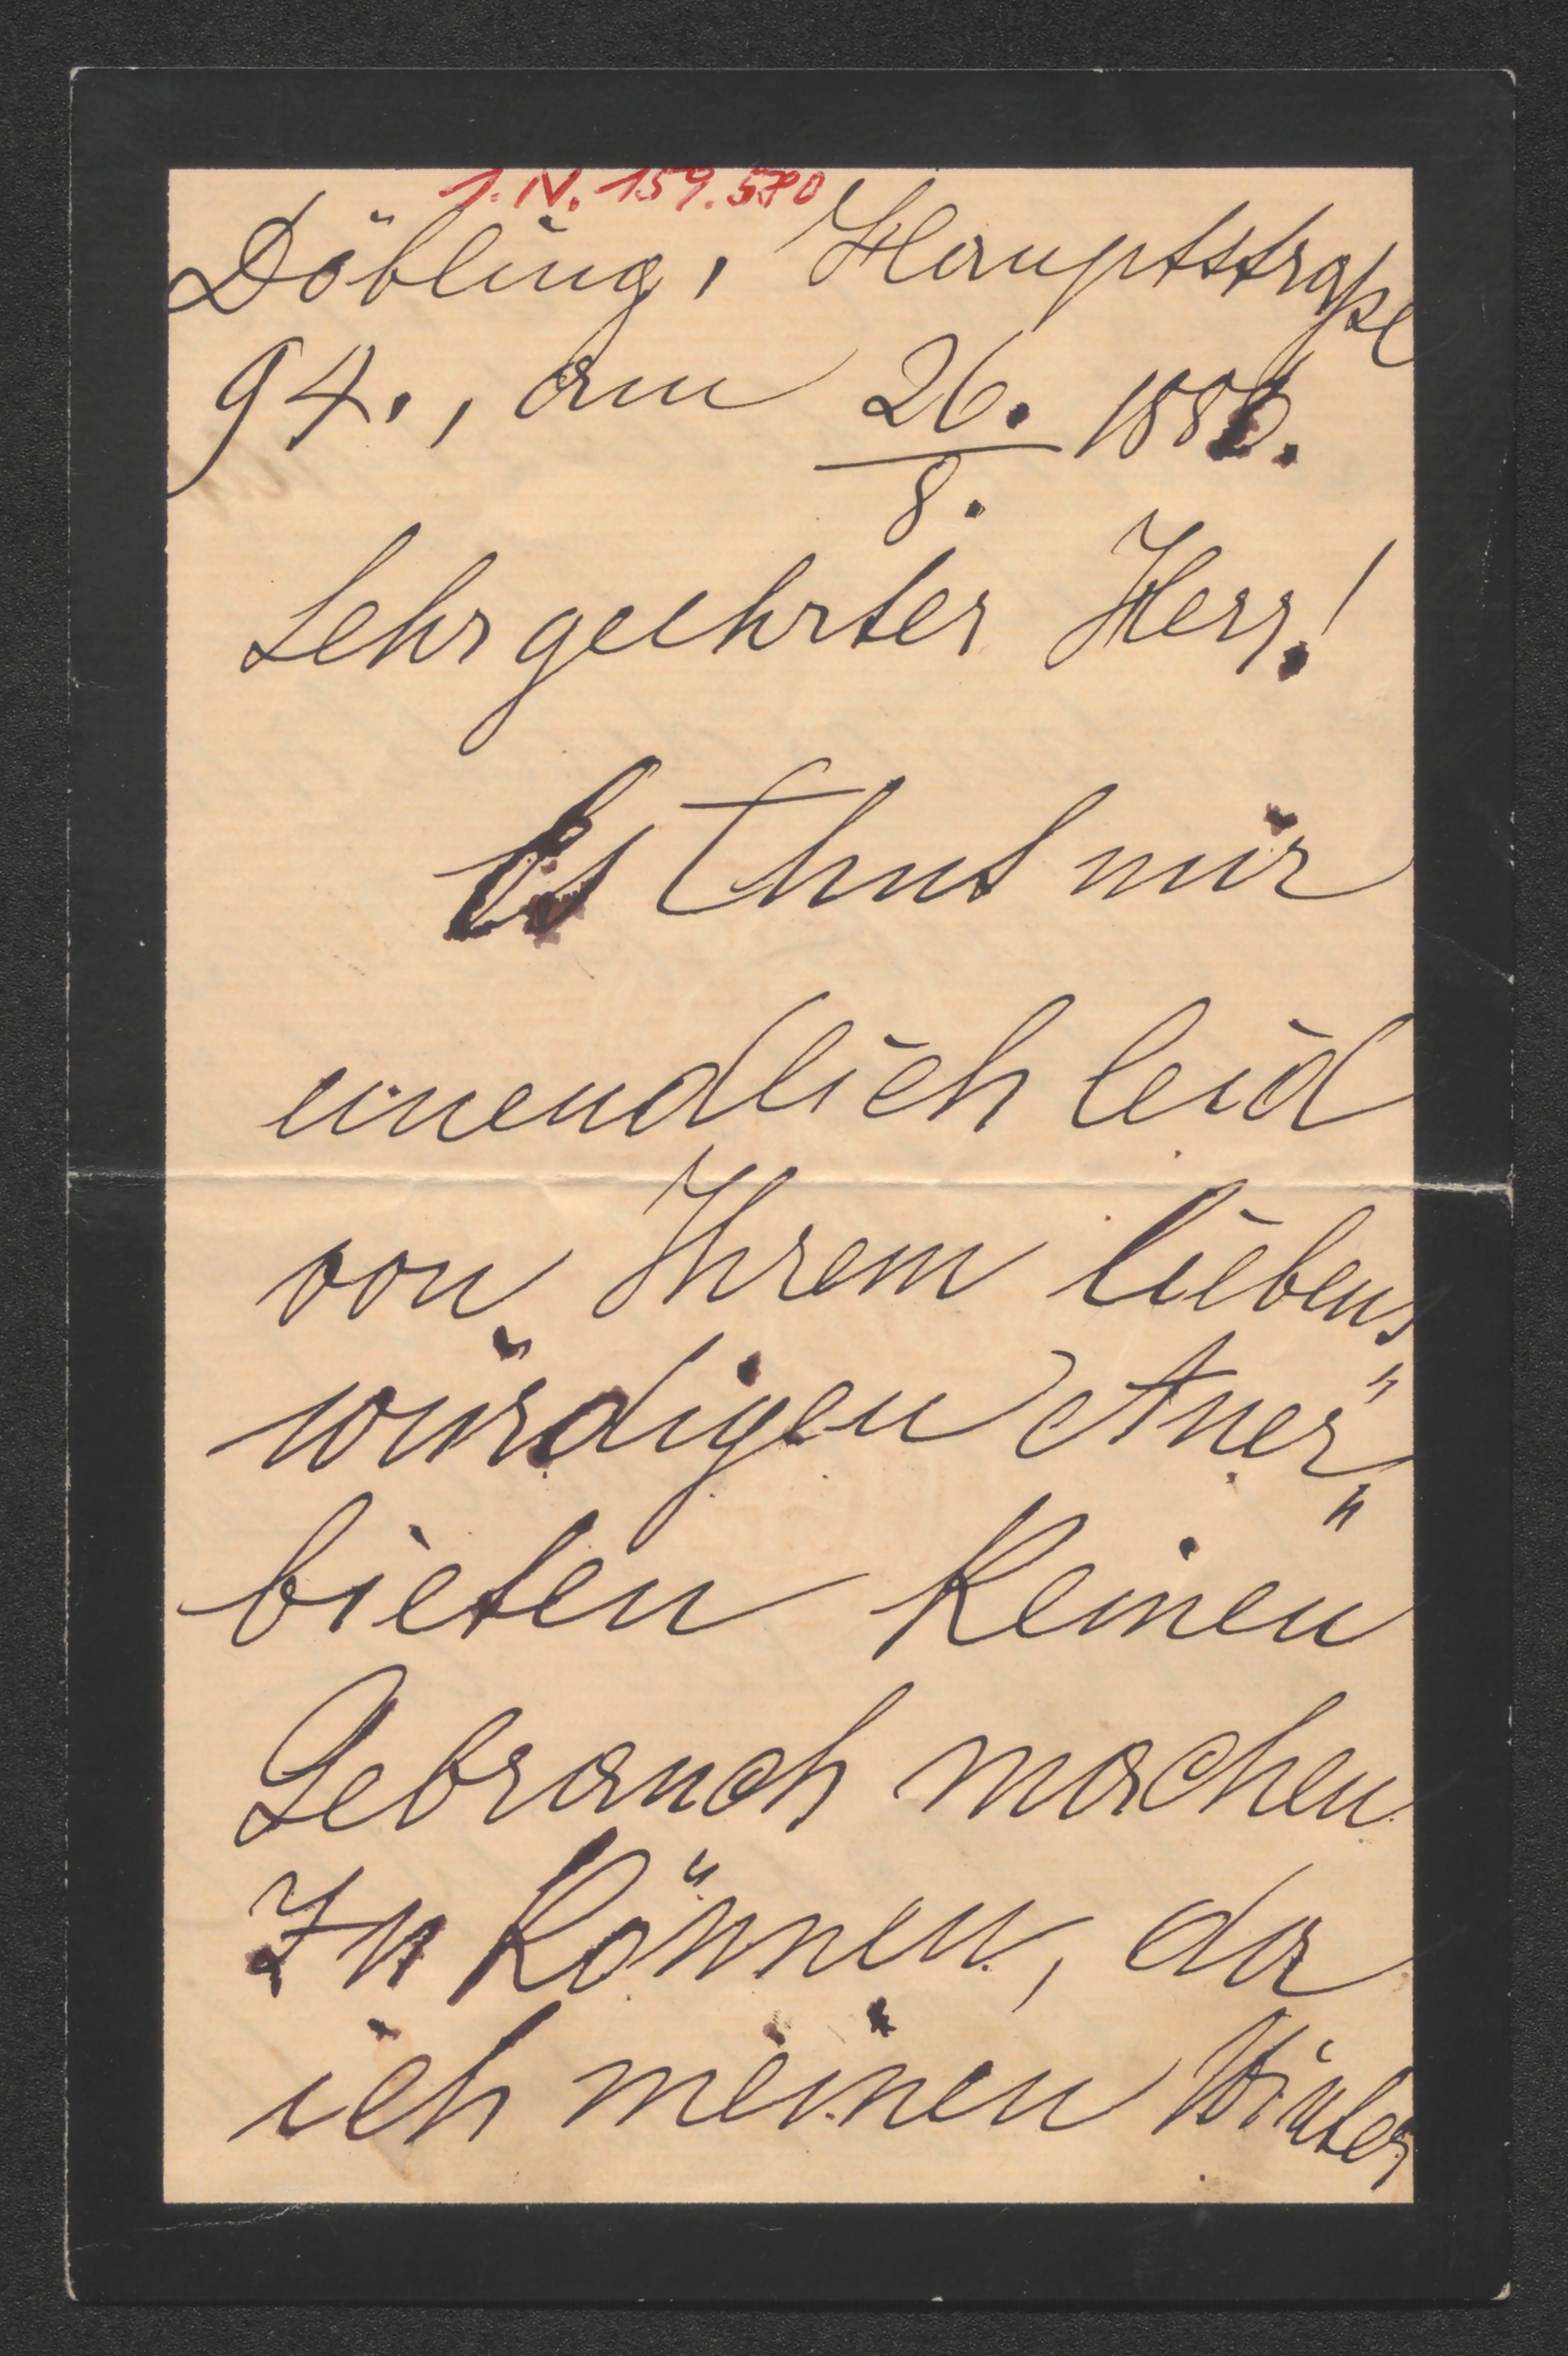 I.N. 159.580
Döbling, Hauptstraße
94., am 26./8. 1886.
Sehrgeehrter Herr!
Es thut mir
unendlich leid
von Ihrem liebens
würdigen Aner"
bieten keinen
Gebrauch machen
zu können, da
ich meinen Winter